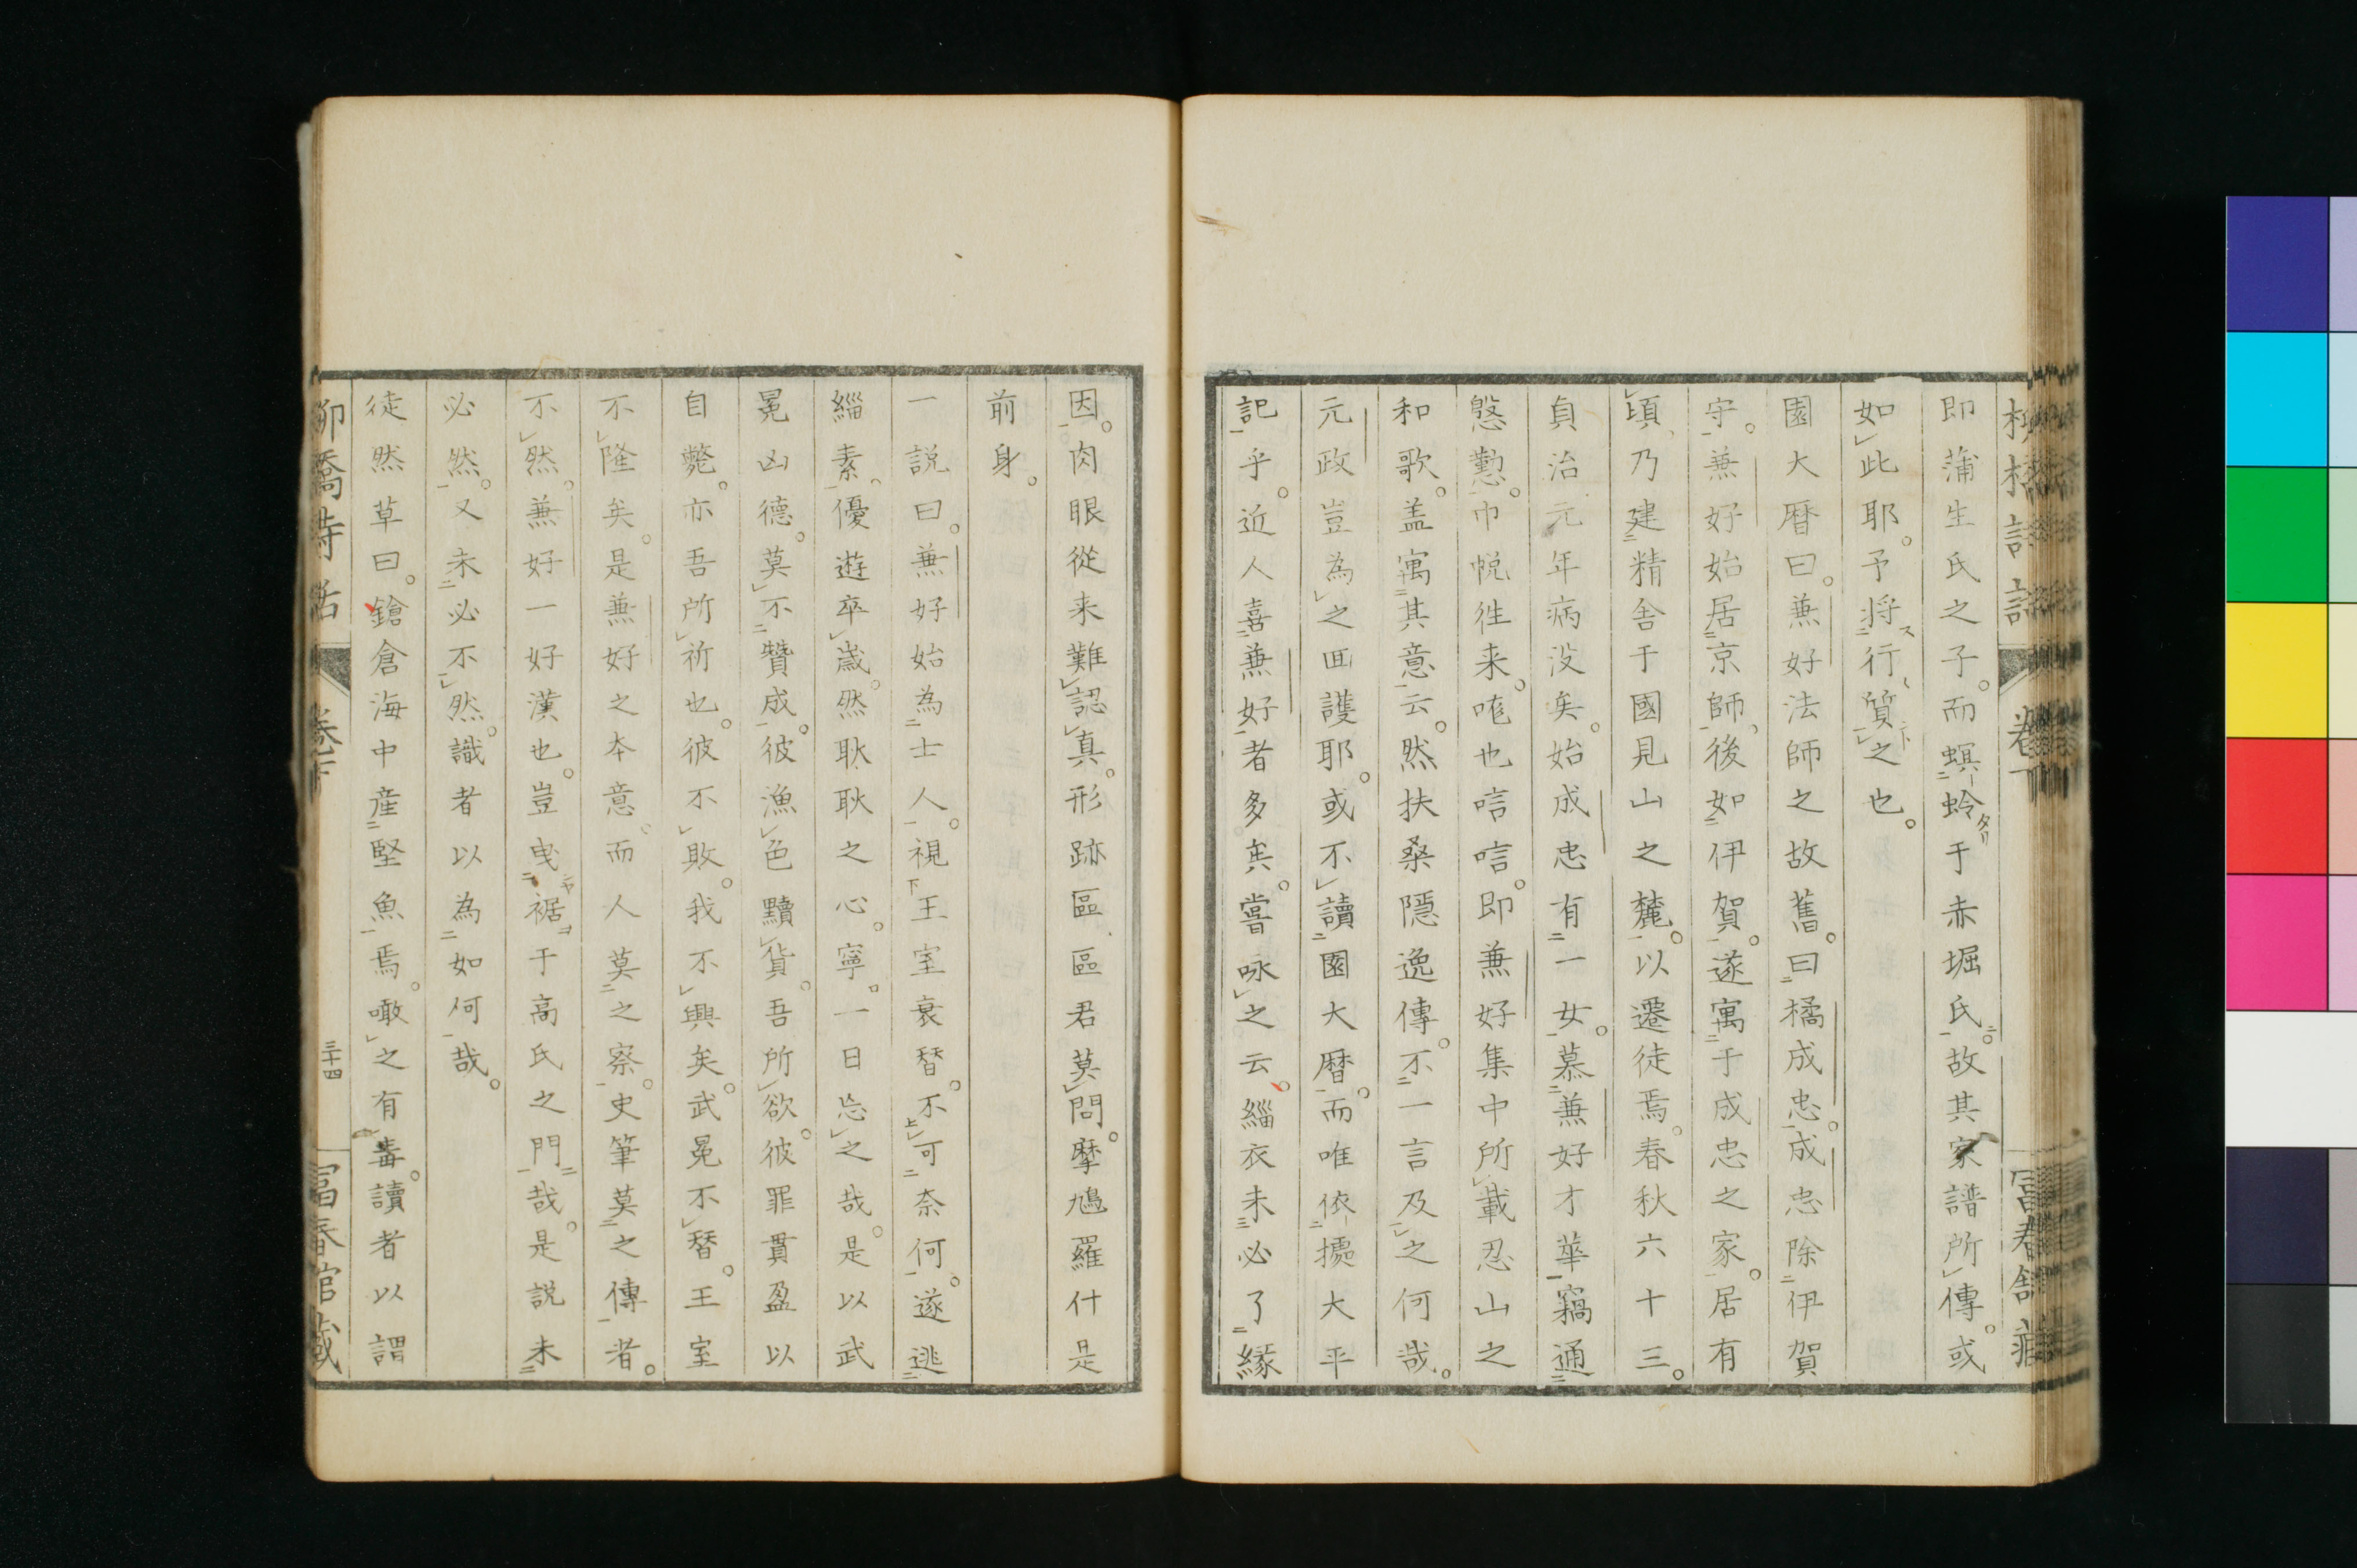 即蒲生氏之子。而螟蛉于赤堀氏。故其家譜所傳。或
如此耶。予将行質之也。
園大暦曰。兼好法師之故舊。曰橘成忠。成忠除伊賀
守。兼好始居京師。後如伊賀。遂寓于成忠之家。居有
頃、乃建精舎于國見山之麓。以遷徒焉。春秋六十三。
貞治元年病没矣。始成忠有一女。慕兼好才華竊通
慇懃。巾帨往来。唯也唁唁。即兼好集中所載忍山之
和歌。盖寓其意云。然扶桑隱逸傳。不一言及之何哉。
元政豈為之回護耶。或不讀園大暦。而唯依據大平
記乎。近人喜兼好者多矣。嘗咏之云。緇衣未必了緣
因。肉眼從来難認真。形跡區區君莫問。摩鳩羅什是
前身。
一説曰。兼好始為士人。視王室衰替。不可奈何。遂逃
緇素。優遊卒歳。然耿耿之心。寧一日忘之哉。是以武
冕凶德。莫不贊成。彼漁色黷貨。吾所欲。彼罪貫盈以
自斃。亦吾所祈也。彼不敗。我不興矣。武冕不替。王室
不隆矣。是兼好之本意。而人莫之察。史筆莫之傳者。
不然。兼好一好漢也。豈曵裾于高氏之門哉。是説未
必然。又未必不然。識者以為如何哉。
徒然草曰。鎗倉海中産堅魚焉。噉之有毒。讀者以謂
柳橋詩話 卷下 三十四 冨春館藏